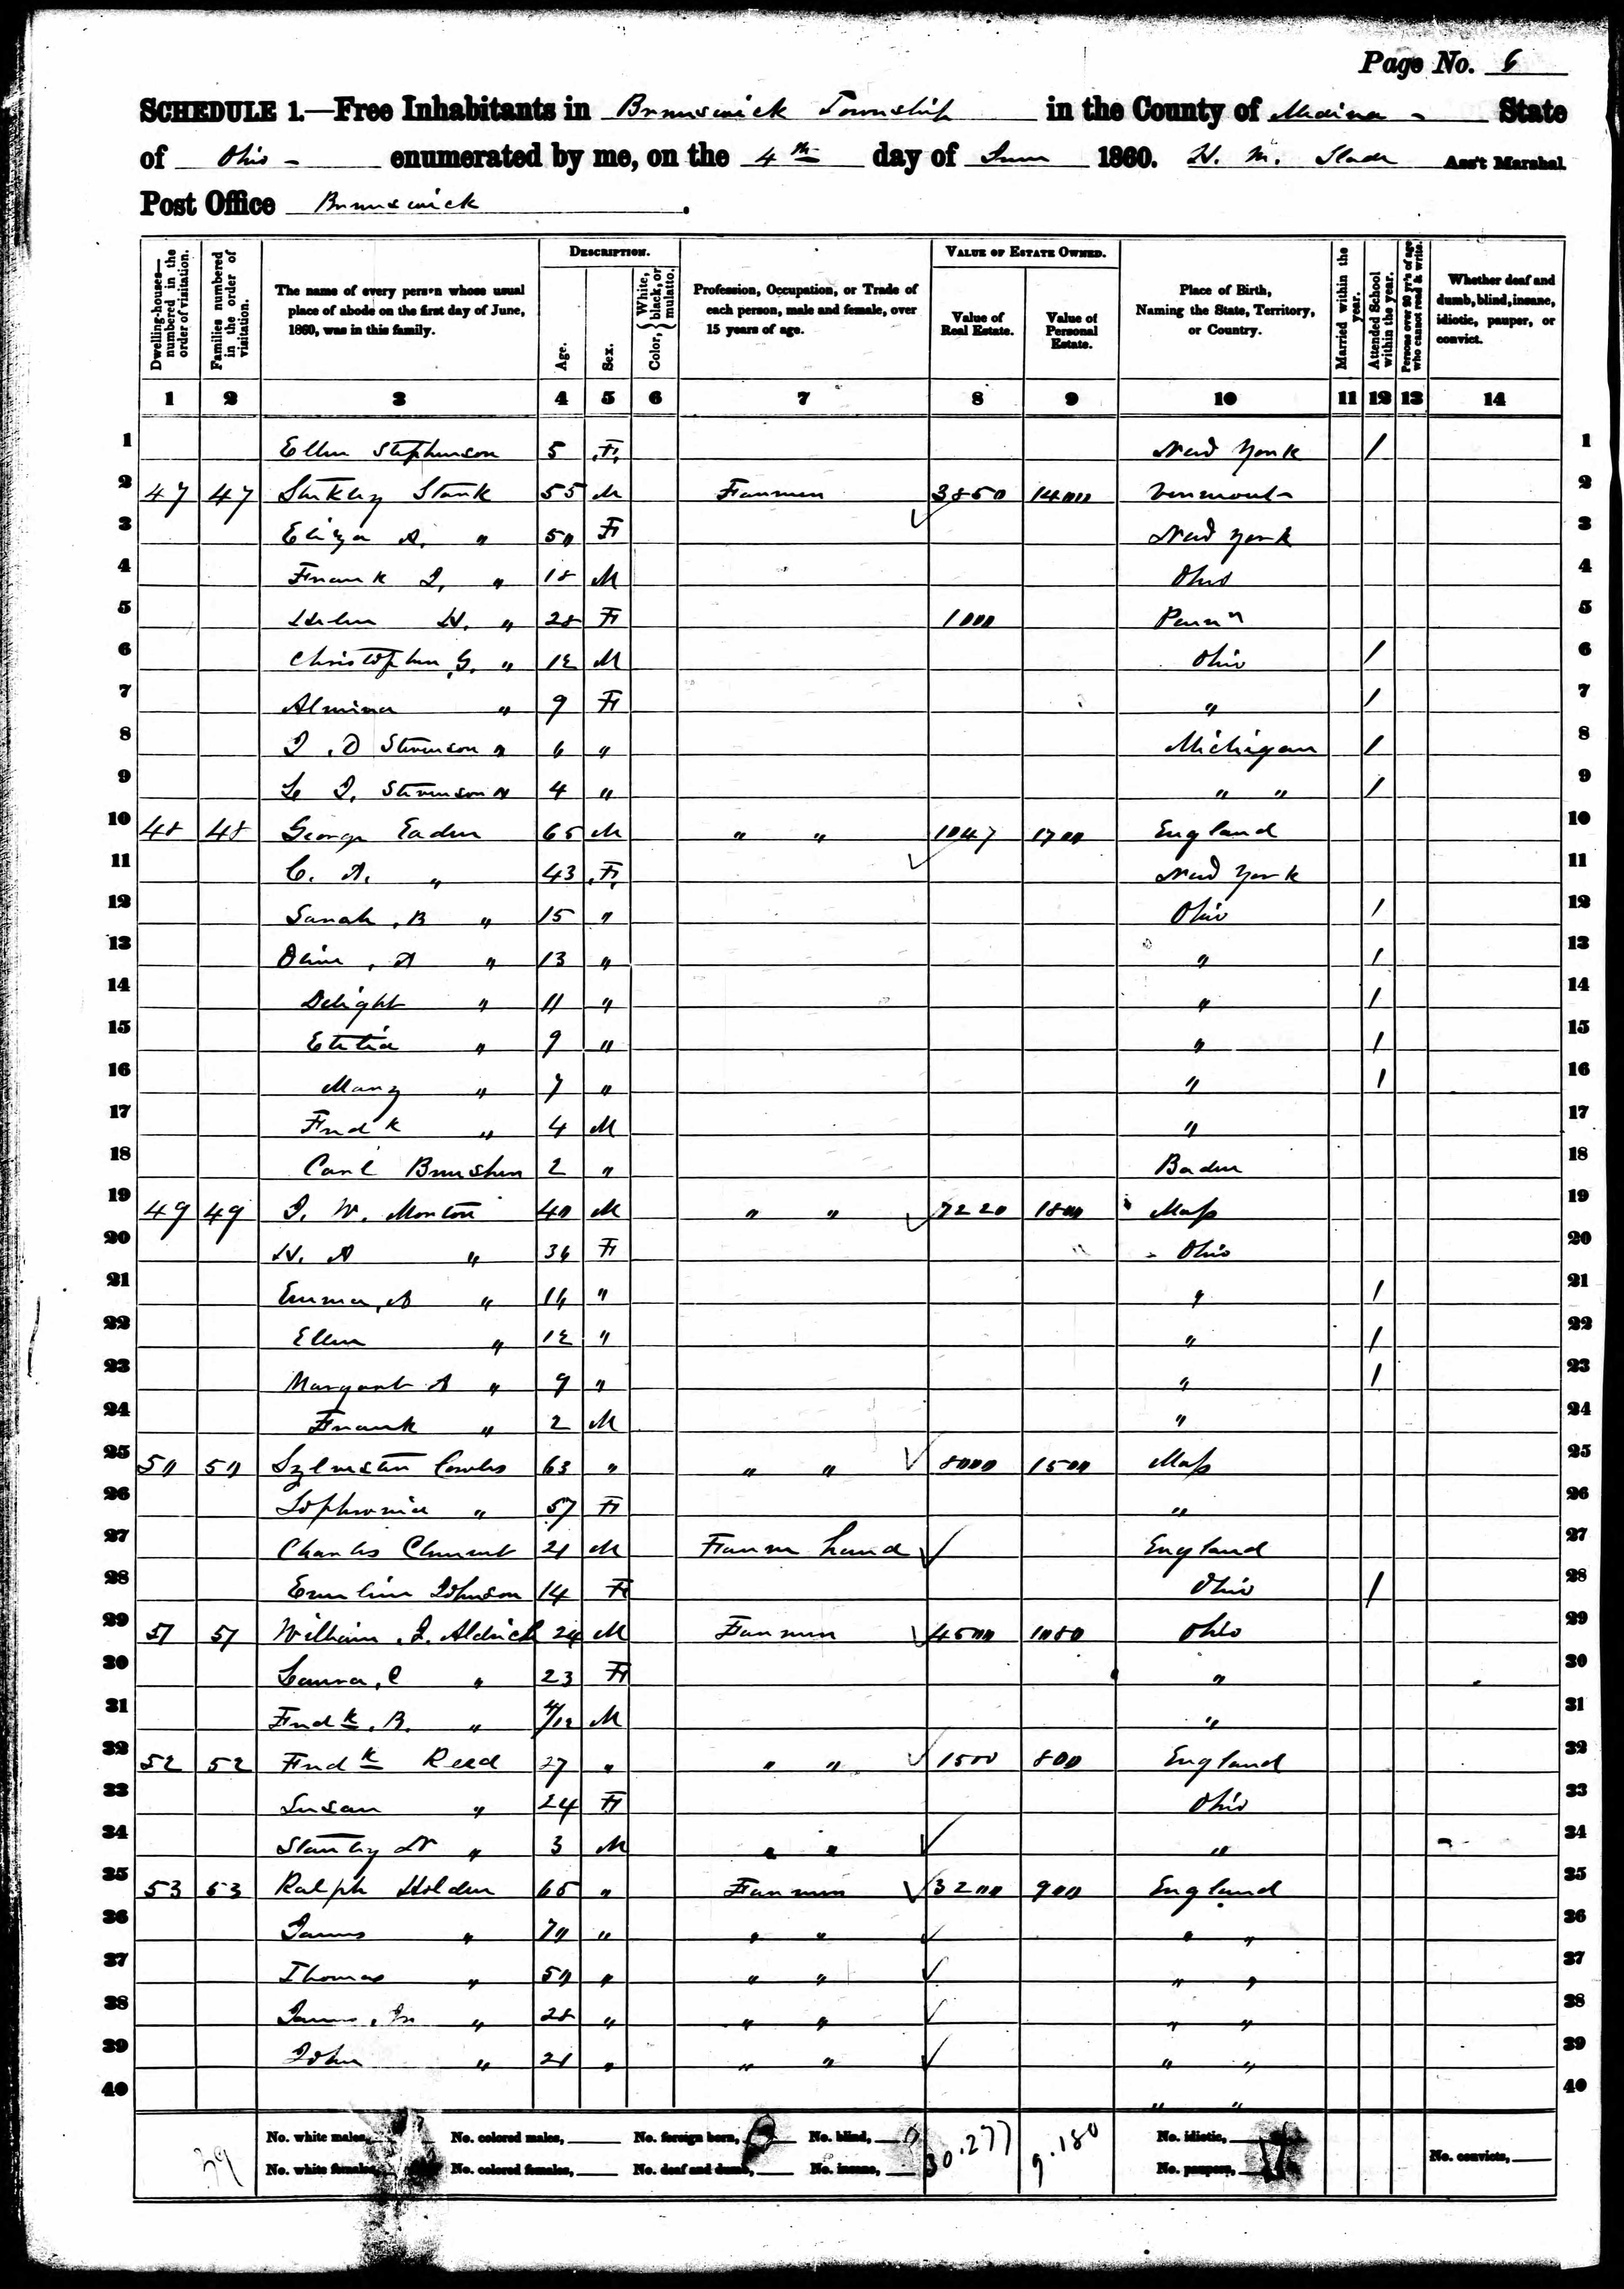 Page No. 6
SCHEDULE 1.—Free Inhabitants in Brunswick Township in the County of Medina State
of Ohio enumerated by me, on the 4th day of June 1860. H. M. Slade Ass't Marshal.
Post Office Brunswick.
Dwelling-houses—numbered in the order of visitation.
Families numbered in the order of visitation.
The name of every person whose usual place of abode on the first day of June, 1860, was in this family.
DESCRIPTION.
Age.
Sex.
Color, { White, black, or mulatto.
Profession, Occupation, or Trade of each person, male and female, over 15 years of age.
VALUE OF ESTATE OWNED.
Value of Real Estate.
Value of Personal Estate.
Place of Birth, Naming the State, Territory, or Country.
Married within the year.
Attended School within the year.
Persons over 20 yr's of age who cannot read & write.
Whether deaf and dumb, blind, insane, idiotic, pauper, or convict.
1 2 3 4 5 6 7 8 9 10 11 12 13 14
1 Ellen Stephenson 5 F New York / 1
2 47 47 Stark 55 M Farmer 3850 1400 Vermont 2
3 Eliza A. " 50 F New York 3
4 Frank J. " 18 M Ohio 4
5 Helen H. " 28 F 1000 Penn 5
6 Christopher G. " 12 M Ohio / 6
7 Almina " 9 F " / 7
8 J. D Stevenson " 6 " Michigan / 8
9 J. Stevenson " 4 " " " / 9
10 48 48 George Eaden 65 M " " 1047 1700 England 10
11 C. A. " 43 F New York 11
12 Sarah, B " 15 " Ohio / 12
13 Olive, A " 13 " " / 13
14 Delight " 11 " " / 14
15 " 9 " " / 15
16 Mary " 7 " " / 16
17 Fredk " 4 M " 17
18 Carl 2 " Baden 18
19 49 49 J. W. Morton 40 M " " 7220 1800 Mass 19
20 H. A " 36 F Ohio 20
21 Emma, A " 14 " " / 21
22 Ellen " 12 " " / 22
23 Margaret A " 9 " " / 23
24 Frank " 2 M " 24
25 50 50 Sylvester Cowles 63 " " " 8000 1500 Mass 25
26 Sophronia " 57 F " 26
27 Charles Clement 21 M Farm hand England 27
28 Emeline Johnson 14 F Ohio / 28
29 51 51 William J. Aldrich 24 M Farmer 4500 1080 Ohio 29
30 Laura, C " 23 F " 30
31 Fredk. B. " 4/12 M " 31
32 52 52 Fredk Reed 27 " " " 1500 800 England 32
33 Susan " 24 F Ohio 33
34 Stanley " 3 M " " " 34
35 53 53 Ralph Holden 65 " Farmer 3200 900 England 35
36 James " 70 " " " " " 36
37 Thomas " 50 " " " " " 37
38 James, Jr " 28 " " " " " 38
39 John " 21 " " " " " 39
40 " " 40
39 No. white males, No. colored males, No. foreign born, No. blind, 30.277 9.180 No. idiotic,
No. white females, No. colored females, No. deaf and dumb, No. insane, No. paupers, No. convicts,